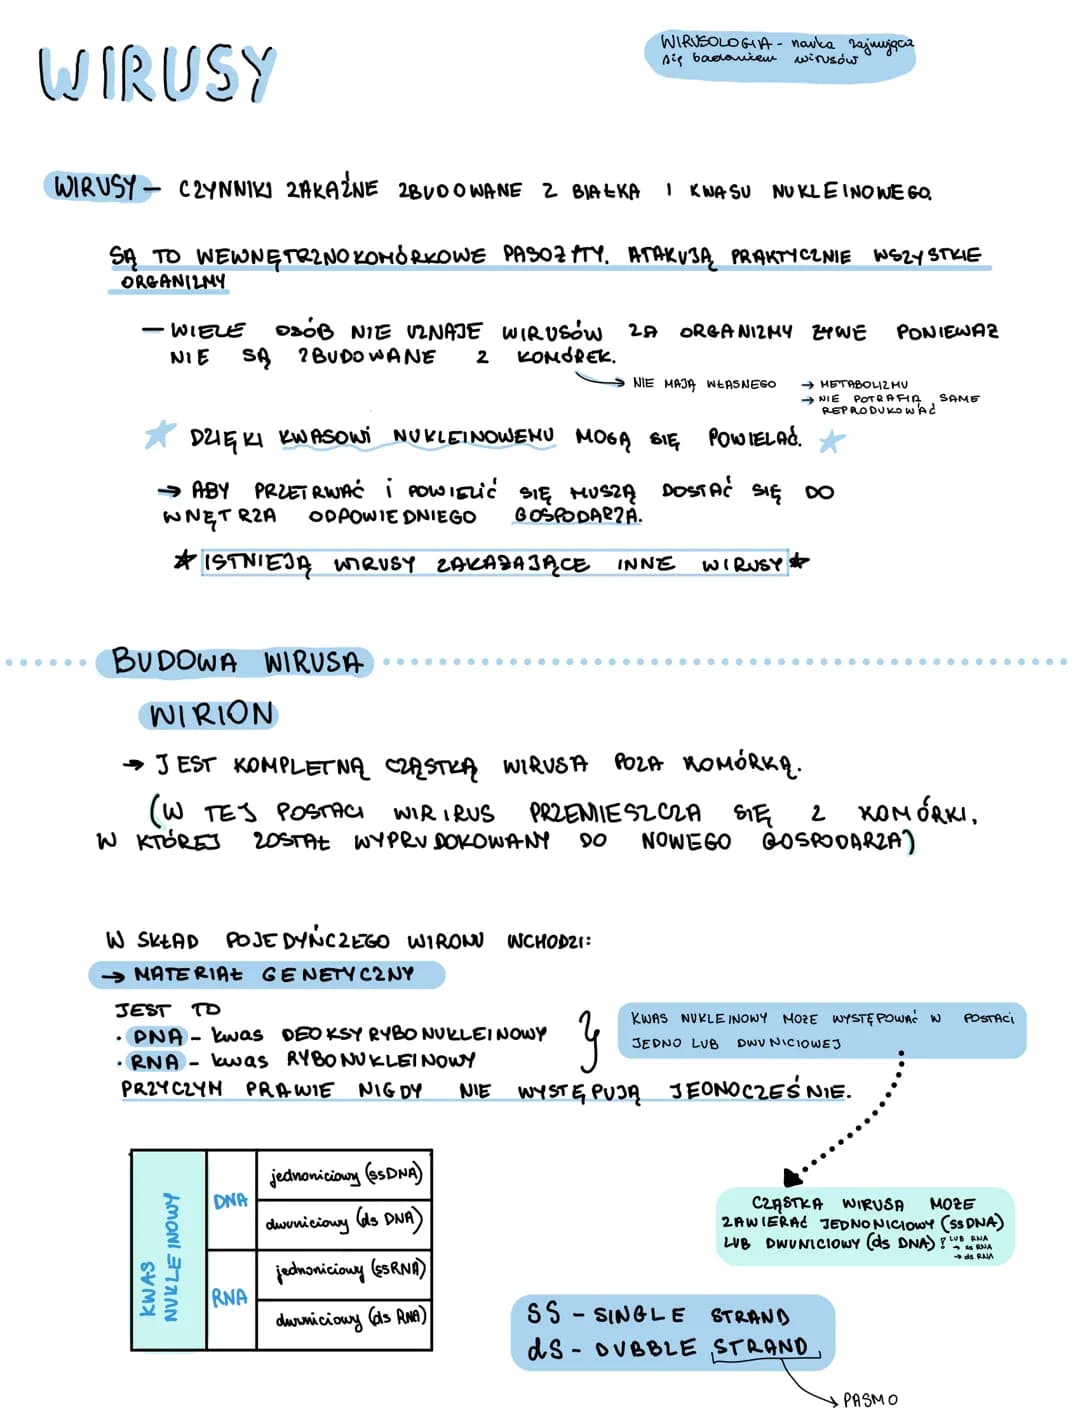 WIRUSY
WIRUSOLOGIA - nauka zajmująca
się badaniem wirusów
WIRUSY - CZYNNIKI ZAKAŹNE ZBUDOWANE Z BIAŁKA I KWASU NUKLEINOWEGO.
SĄ TO WEWNĘTRZNOKOMÓRKOWE PASOŻYTY. ATAKUJĄ PRAKTYCZNIE WSZYSTKIE
ORGANIZMY
- WIELE OSÓB NIE UZNAJE WIRUSÓW ZA ORGANIZMY ŻYWE PONIEWAŻ
NIE SĄ ZBUDOWANE Z KOMÓREK.
→ NIE MAJĄ WŁASNEGO → METABOLIZMU
→ NIE POTRAFIĄ SAME
REPRODUKOWAĆ
★ DZIĘKI KWASOWI NUKLEINOWEMU MOGĄ SIĘ POWIELAĆ. ★
→ ABY PRZETRWAĆ i POWIELIĆ SIĘ MUSZĄ DOSTAĆ SIĘ DO
WNĘTRZA ODPOWIEDNIEGO GOSPODARZA.
★ ISTNIEJĄ WIRUSY ZAKAŻAJĄCE INNE WIRUSY ★
BUDOWA WIRUSA
WIRION
→ JEST KOMPLETNĄ CZĄSTKĄ WIRUSA POZA KOMÓRKĄ.
(W TEJ POSTACI WIRIRUS PRZEMIESZCZA SIĘ Z KOMÓRKI,
W KTÓREJ ZOSTAŁ WYPRUDOKOWANY DO NOWEGO GOSPODARZA)
W SKŁAD POJEDYŃCZEGO WIRONU WCHODZI:
→ MATERIAŁ GENETYCZNY
JEST TO
· DNA - kwas DEOKSYRYBONUKLEINOWY
· RNA - kwas RYBONUKLEINOWY
PRZYCZYM PRAWIE NIGDY NIE WYSTĘPUJĄ JEDNOCZEŚNIE.
KWAS NUKLEINOWY MOŻE WYSTĘPOWAĆ W POSTACI
JEDNO LUB DWUNICIOWEJ
KWAS
NUKLEINOWY
DNA
jednoniciowy (ssDNA)
dwuniciowy (ds DNA)
RNA
jednoniciowy (ssRNA)
dwuniciowy (ds RNA)
CZĄSTKA WIRUSA MOŻE
ZAWIERAĆ JEDNONICIOWY (ssDNA)
LUB DWUNICIOWY (ds DNA)
LUB RNA
→ ss RNA
→ ds RNA
SS - SINGLE STRAND
dS - DUBBLE STRAND
→ PASMO